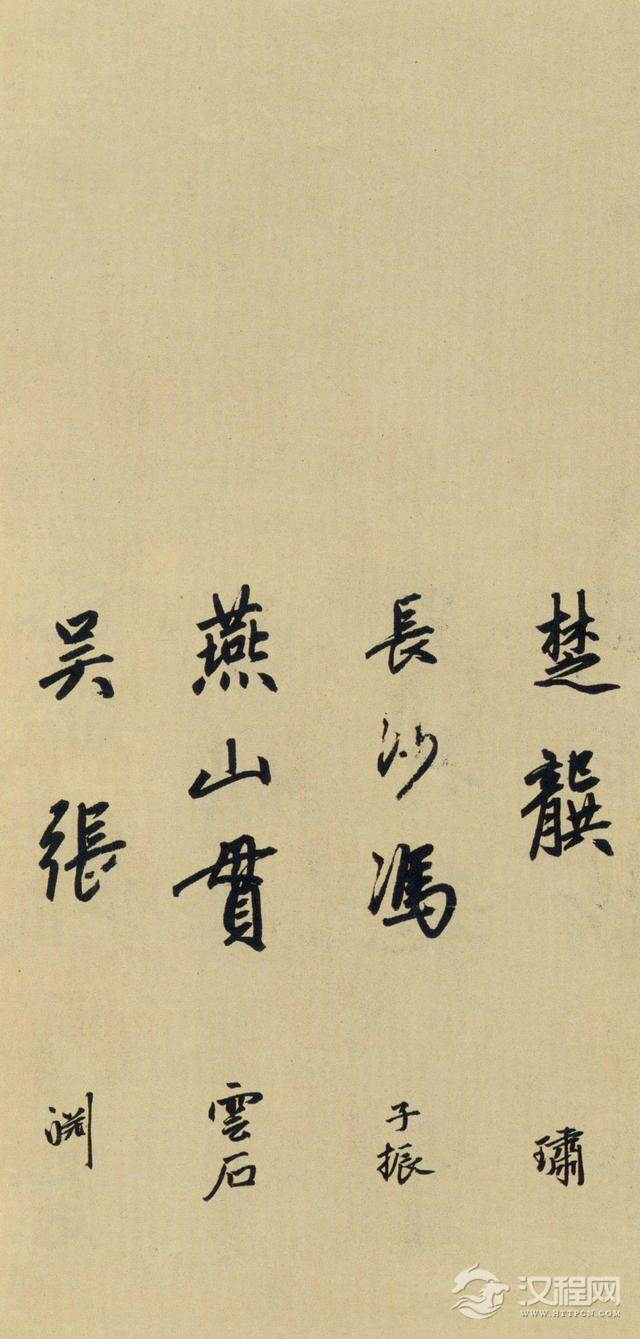 楚龔璛
長沙馮子振
燕山貫雲石
吴張淵
汉程网
WWW.HTTPCN.COM